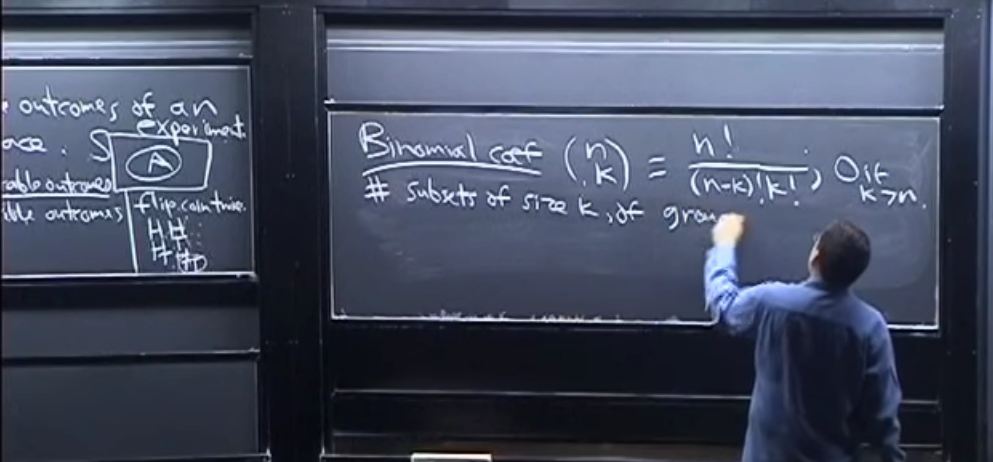 outcomes of an
experiment.
S
A
able outcomes
ible outcomes
flip coin twice.
HH
Binomial coef (n k) ≡ n!/((n-k)!k!), 0 if k>n.
# subsets of size k, of grou